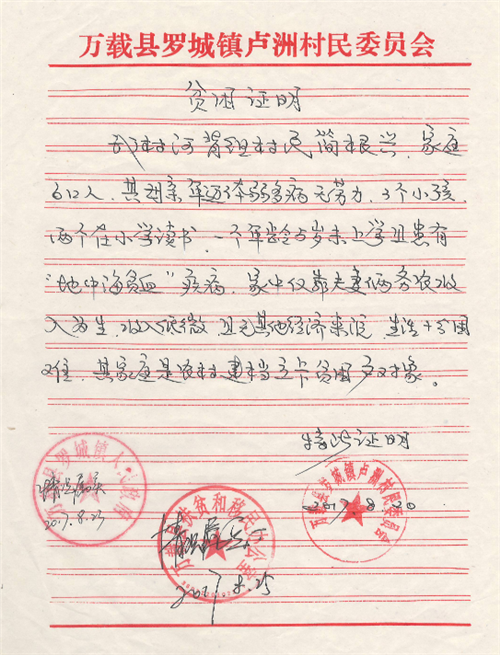 万载县罗城镇卢洲村民委员会
贫困证明
我村河背组村民简根兴，家庭
6口人，其母亲年迈体弱多病无劳力，3个小孩，
两个在小学读书，一个年龄5岁未上学且患有
“地中海贫血”疾病，家中仅靠夫妻俩务农收
入为生，收入低微，且无其他经济来源，生活十分困
难，其家庭是农村建档立卡贫困户对象。
特此证明
2017.8.20
万载县罗城镇卢洲村民委员会
万载县罗城镇人民政府
情况属实
2017.8.23
万载县扶贫和移民办公室
情况属实
2017.8.25